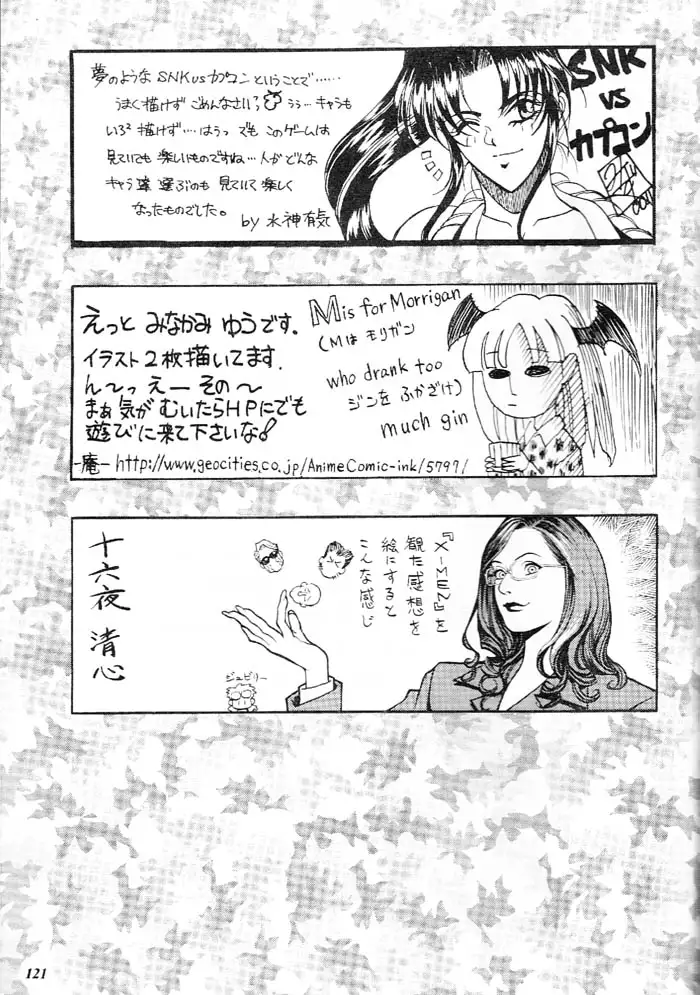 夢のような SNK vs カプコン ということで……
うまく描けず ごめんなさい? うぅ… キャラも
いろ²描けず…はうっ でも このゲームは
見ていても 楽しいものですね…人が どんな
キャラ達 選ぶのも 見ていて 楽しく
なったものでした。
by 水神有気
SNK
vs
カプコン
えっと みなかみ ゆうです。
イラスト2枚描いてます.
ん〜っ えー その〜
まぁ 気が むいたらHPにでも
遊びに来て下さいな!
-庵- http://www.geocities.co.jp/AnimeComic-ink/5797/
M is for Morrigan
(Mは モリガン
who drank too
ジンを ふかざけ)
much gin
『X-MEN』を
観た感想を
絵にすると
こんな感じ
ジュビリー
十六夜 清心
121